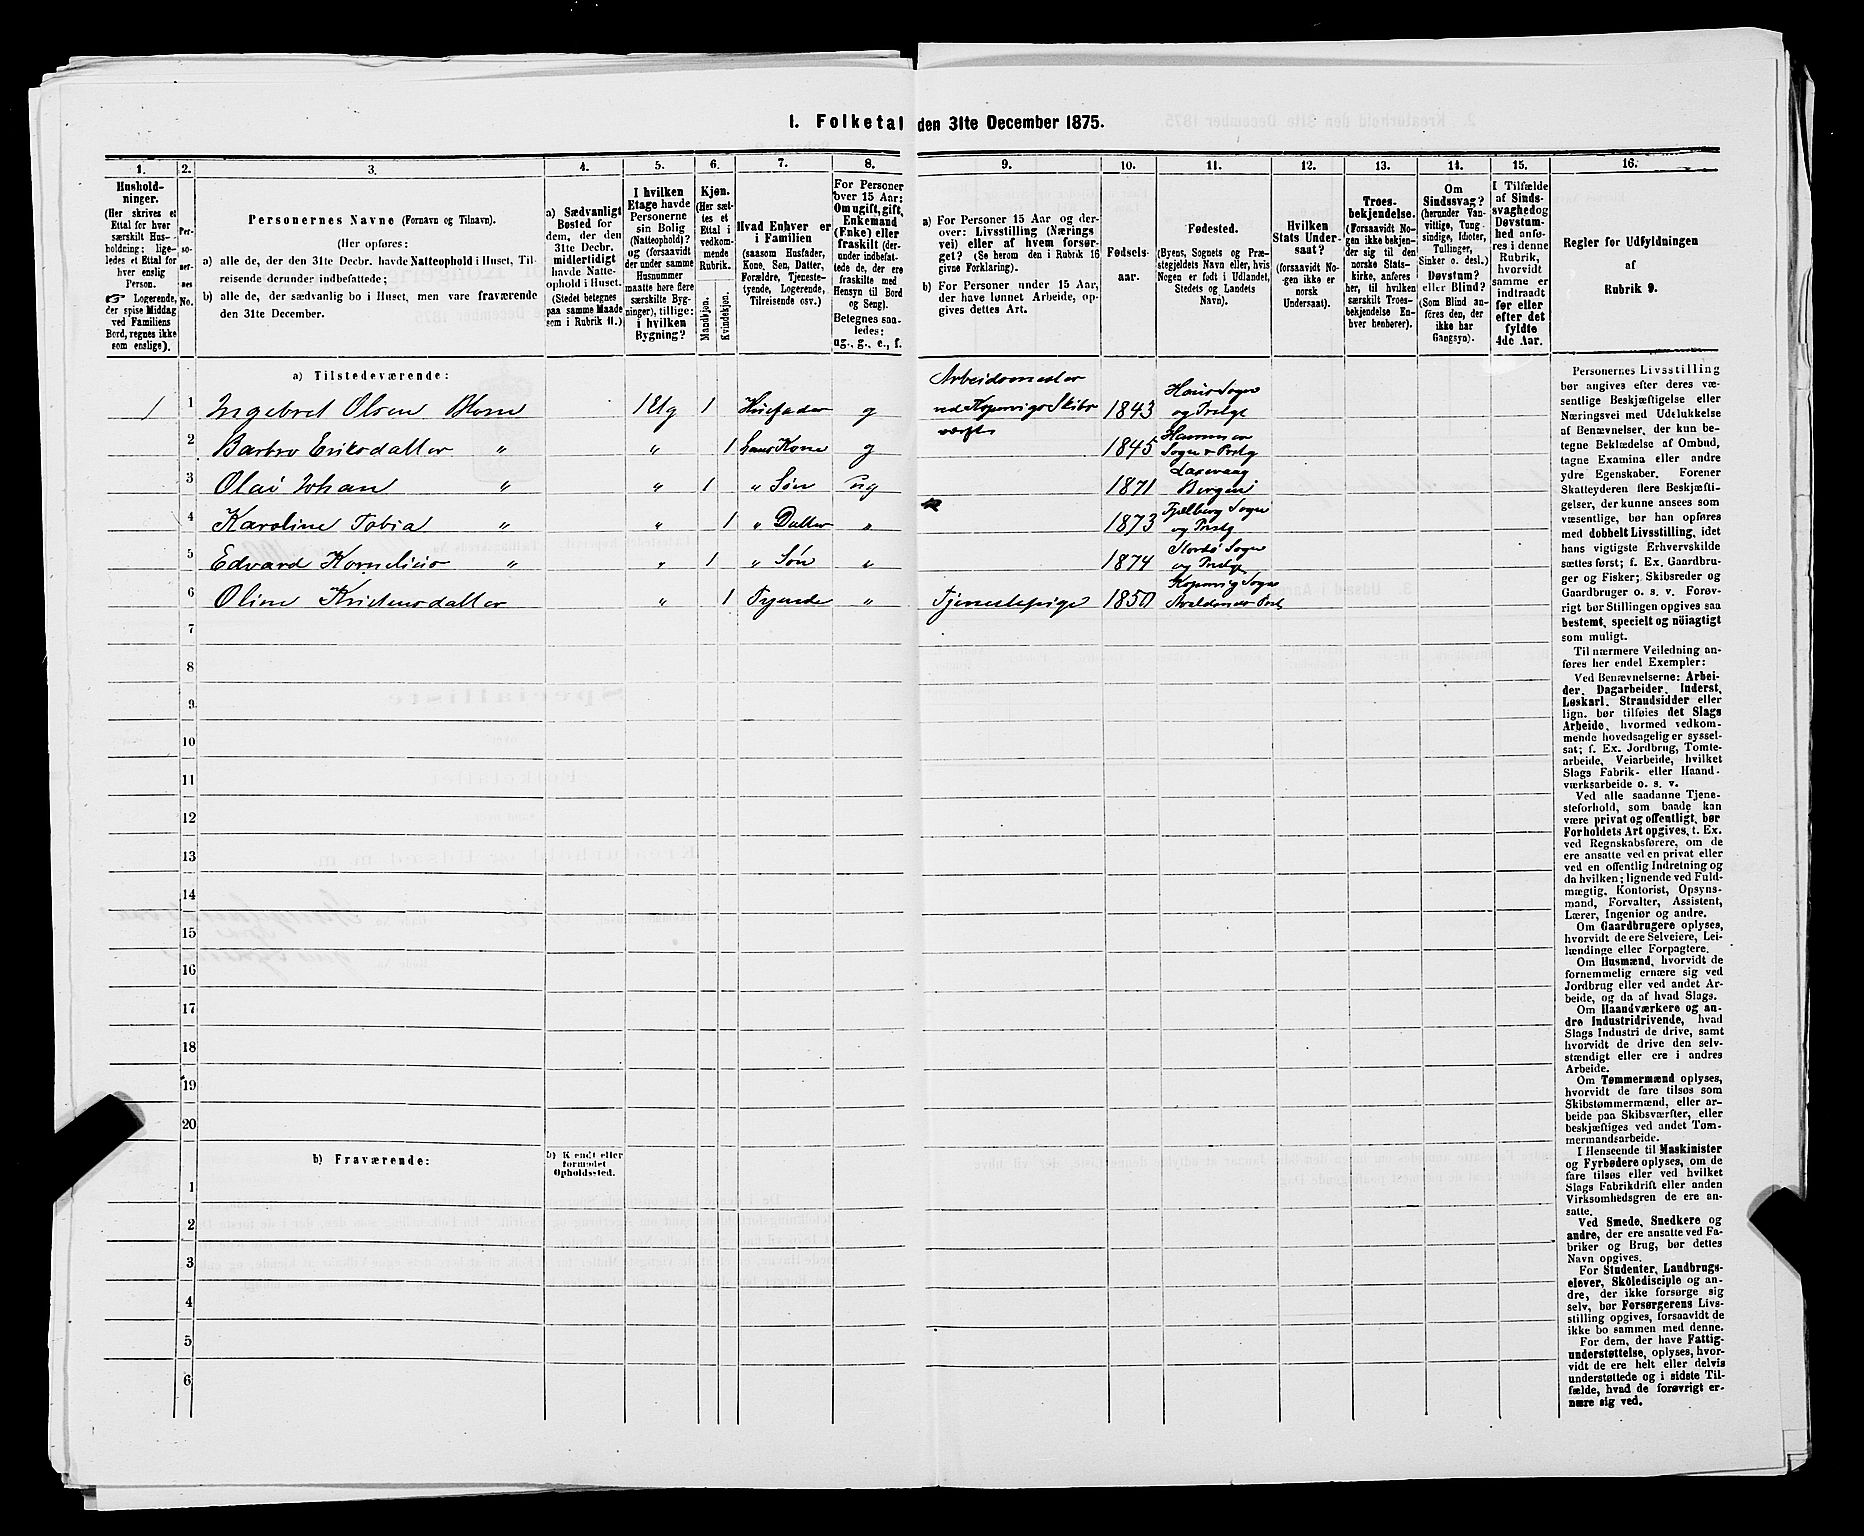 1. Folketal den 31te December 1875.
1. 2. 3. 4. 5. 6. 7. 8. 9. 10. 11. 12. 13. 14. 15. 16.
Hushold-
ninger.
(Her skrives et
Ettal for hver
særskilt Hus-
holdning; lige-
ledes et Ettal for
hver enslig
Person.
☞ Logerende,
der spise Middag
ved Familiens
Bord, regnes ikke
som enslige).
Per-
so-
ner-
nes
No.
Personernes Navne (Fornavn og Tilnavn).
(Her opføres:
a) alle de, der den 31te Decbr. havde Natteophold i Huset, Til-
reisende derunder indbefattede;
b) alle de, der sædvanlig bo i Huset, men vare fraværende
den 31te December.
a) Sædvanligt
Bosted for
dem, der den
31te Decbr.
midlertidigt
havde Natte-
ophold i Huset.
(Stedet betegnes
paa samme Maade
som i Rubrik 11.)
I hvilken
Etage havde
Personerne
sin Bolig
(Natteophold)?
og (forsaavidt
der under samme
Husnummer
maatte høre flere
særskilte Byg-
ninger), tillige:
i hvilken
Bygning?
Kjøn.
(Her sæt-
tes et
Ettal i
vedkom-
mende
Rubrik.
Mandkjøn.
Kvindekjøn.
Hvad Enhver er
i Familien
(saasom Husfader,
Kone, Søn, Datter,
Forældre, Tjeneste-
tyende, Logerende,
Tilreisende osv.)
For Personer
over 15 Aar:
Om ugift, gift,
Enkemand
(Enke) eller
fraskilt (der-
under indbefat-
tede de, der ere
fraskilte med
Hensyn til Bord
og Seng).
Betegnes saa-
ledes:
ug., g., e., f.
a) For Personer 15 Aar og der-
over: Livsstilling (Nærings
vei) eller af hvem forsør-
get? (Se herom den i Rubrik 16
givne Forklaring).
b) For Personer under 15 Aar,
der have lønnet Arbeide, op-
gives dettes Art.
Fødsels-
aar.
Fødested.
(Byens, Sognets og Præ-
stegjeldets Navn eller, hvis
Nogen er født i Udlandet,
Stedets og Landets
Navn).
Hvilken
Stats Under-
saat?
(forsaavidt No-
gen ikke er
norsk
Undersaat).
Troes-
bekjendelse.
(Forsaavidt No-
gen ikke bekjen-
der sig til den
norske Stats-
kirke, anføres
her, til hvilken
særskilt Troes-
bekjendelse En-
hver henhører).
Om
Sindssvag?
(herunder Van-
vittige, Tung-
sindige, Idioter,
Tullinger,
Sinker o. desl.)
Døvstum?
eller Blind?
(Som Blind an-
føres den, der
ikke har
Gangsyn).
I Tilfælde
af Sinds-
svaghed og
Døvstum-
hed anfø-
res i denne
Rubrik,
hvorvidt
samme er
indtraadt
før eller
efter det
fyldte
4de Aar.
Regler for Udfyldningen
af
Rubrik 9.
a) Tilstedeværende:
1 1 Ingebret Olsen Blom 1 Etg 1 Husfader g Arbeidsmester
ved Kopervigs Skibs
værft 1843 Haus Sogn
og Prstgj
2 Barbro Eriksdatter " " 1 hans Kone g 1845 Hammer
Sogn & Prstg
3 Olai Johan " " 1 " Søn ug 1871 Laxevaag
Bergen
4 Karoline Tobia " " 1 " Datter " 1873 Fjelberg Sogn
og Prstg
5 Edvard Kornelius " " 1 " Søn " 1874 Stordø Sogn
og Prstg
6 Oline Kristensdatter " 1 Tyende " Tjenestepige 1850 Kopervig Sogn
Avaldsnes Prst
7
8
9
10
11
12
13
14
15
16
17
18
19
20
b) Fraværende:
b) Kjendt eller
formodet
Opholdssted.
1
2
3
4
5
6
Personernes Livsstilling
bør angives efter deres væ-
sentlige Beskjæftigelse eller
Næringsvei med Udelukkelse
af Benævnelser, der kun be-
tegne Beklædelse af Ombud,
tagne Examina eller andre
ydre Egenskaber. Forener
Skatteyderen flere Beskjæfti-
gelser, der kunne ansees som
væsentlige, bør han opføres
med dobbelt Livsstilling, idet
hans vigtigste Erhvervskilde
sættes først; f. Ex. Gaardbru-
ger og Fisker; Skibsreder og
Gaardbruger o. s. v. Forøv-
rigt bør Stillingen opgives saa
bestemt, specielt og nöiagtigt
som muligt.
Til nærmere Veiledning an-
føres her endel Exempler:
Ved Benævnelserne: Arbei-
der, Dagarbeider, Inderst,
Løskarl, Strandsidder eller
lign. bør tilføies det Slags
Arbeide, hvormed vedkom-
mende hovedsagelig er syssel-
sat; f. Ex. Jordbrug, Tomte-
arbeide, Veiarbeide, hvilket
Slags Fabrik- eller Haand-
værksarbeide o. s. v.
Ved alle saadanne Tjene-
steforhold, som baade kan
være privat og offentligt, bør
Forholdets Art opgives, t. Ex.
ved Regnskabsførere, om de
ere ansatte ved en privat eller
ved en offentlig Indretning og
da hvilken; lignende ved Fuld-
mægtig, Kontorist, Opsyns-
mand, Forvalter, Assistent,
Lærer, Ingeniør og andre.
Om Gaardbrugere oplyses,
hvorvidt de ere Selveiere, Lei-
lændinge eller Forpagtere.
Om Husmænd, hvorvidt de
fornemmelig ernære sig ved
Jordbrug eller ved andet Ar-
beide, og da af hvad Slags.
Om Haandværkere og an-
dre Industridrivende, hvad
Slags Industri de drive, samt
hvorvidt de drive den selv-
stændigt eller ere i andres
Arbeide.
Om Tømmermænd oplyses,
hvorvidt de fare tilsøs som
Skibstømmermænd, eller ar-
beide paa Skibsværfter, eller
beskjæftiges ved andet Tøm-
mermandsarbeide.
I Henseende til Maskinister
og Fyrbødere oplyses, om de
fare tilsøs eller ved hvilket
Slags Fabrikdrift eller anden
Virksomhedsgren de ere an-
satte.
Ved Smede, Snedkere og
andre, der ere ansatte ved Fa-
briker og Brug, bør dettes
Navn opgives.
For Studenter, Landbrugs-
elever, Skôledisciple og an-
dre, der ikke forsørge sig
selv, bør Forsørgerens Livs-
stilling opgives, forsaavidt de
ikke bo sammen med denne.
For dem, der have Fattig-
understøttelse, oplyses, hvor-
vidt de ere helt eller delvis
understøttede og i sidste Til-
fælde, hvad de forøvrigt er-
nære sig ved.